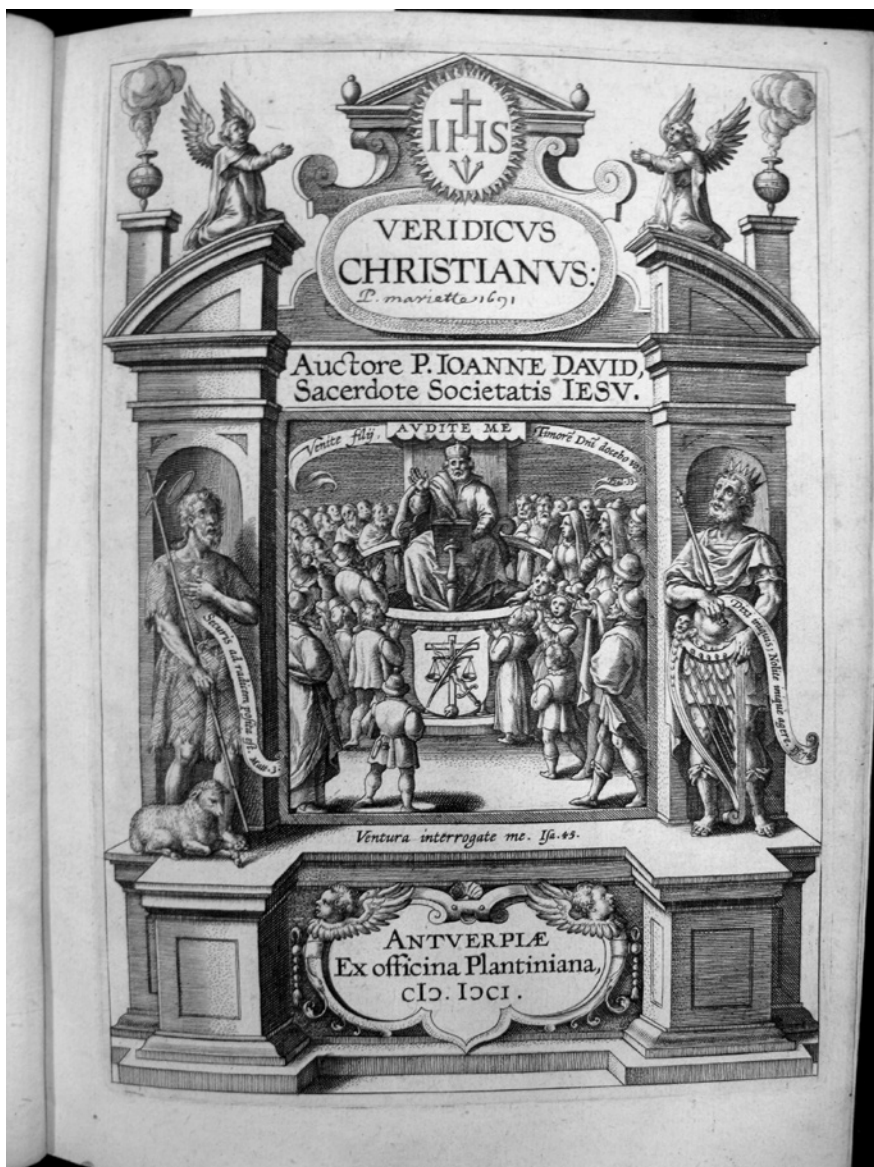 IHS
VERIDICVS
CHRISTIANVS:
P. mariette 1691
Auctore P. IOANNE DAVID,
Sacerdote Societatis IESV.
Venite filij.
AVDITE ME
Timorē Dnī docebo vos
Securis ad radicem posita est. Matt. 3.
Dixi iniquis: Nolite inique agere.
Ventura interrogate me. Isa. 45.
ANTVERPIÆ
Ex officina Plantiniana,
cIↄ. IↄcI.